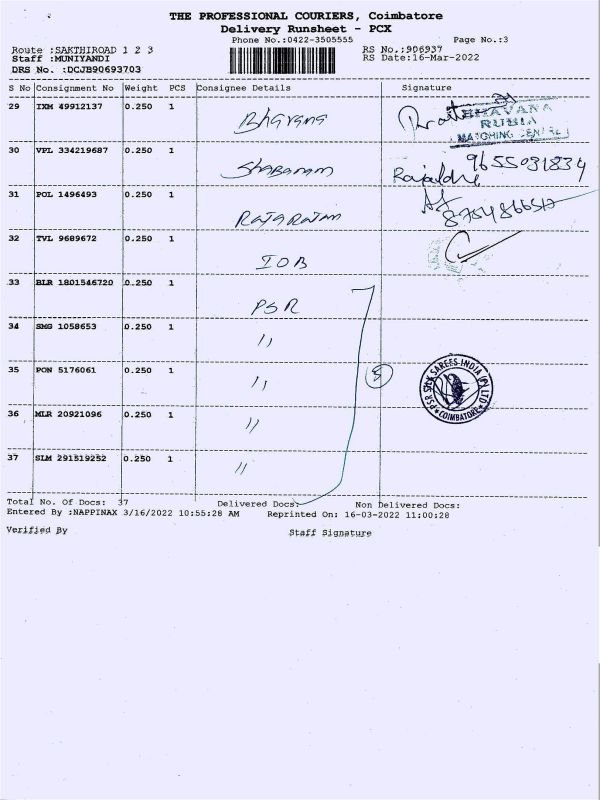 THE PROFESSIONAL COURIERS, Coimbatore
Delivery Runsheet - PCX
Phone No.:0422-3505555 Page No.:3
Route :SAKTHIROAD 1 2 3 RS No.:906937
Staff :MUNIYANDI RS Date:16-Mar-2022
DRS No. :DCJB90693703
S No Consignment No Weight PCS Consignee Details Signature
29 IXM 49912137 0.250 1 Bhavana
BHAVANA
RUBIA
MATCHING CENTRE
30 VPL 334219687 0.250 1 Shabanam 9655031834
31 POL 1496493 0.250 1 RAJARAJAM
32 TVL 9689672 0.250 1 IOB
33 BLR 1801546720 0.250 1 PSR
34 SMG 1058653 0.250 1 "
35 PON 5176061 0.250 1 " 5
PSR SILK SAREES INDIA (P) LTD
COIMBATORE
36 MLR 20921096 0.250 1 "
37 SLM 291519252 0.250 1 "
Total No. Of Docs: 37 Delivered Docs: Non Delivered Docs:
Entered By :NAPPINAX 3/16/2022 10:55:28 AM Reprinted On: 16-03-2022 11:00:28
Verified By Staff Signature